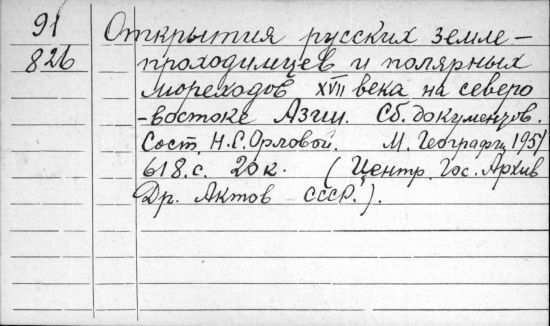 91 Открытия русских земле-
826 проходимцев и полярных
мореходов XVII века на северо
-востоке Азии. Сб. документов.
Сост. Н.С. Орловой. М. Географгиз 1951
618.с. 20к. (Центр. Гос. Архив
Др. Актов СССР.).